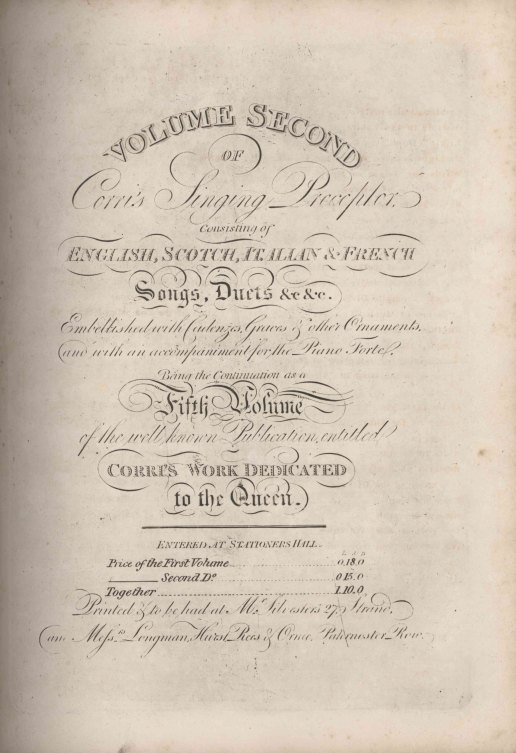 VOLUME SECOND
OF
Corri's Singing Preceptor,
Consisting of
ENGLISH, SCOTCH, ITALIAN & FRENCH
Songs, Duets &c &c.
Embellished with Cadenzes, Graces & other Ornaments,
and with an accompaniment for the Piano Forte.
Being the Continuation as a
Fifth Volume
of the well known Publication, entitled
CORRI'S WORK DEDICATED
to the Queen.
ENTERED AT STATIONERS HALL.
L S D
Price of the First Volume 0.18.0
Second Do. 0 15.0
Together 1.10.0
Printed & to be had at Mr. Silvesters 27 Strand,
and Messrs. Longman, Hurst, Rees & Orme, Paternoster Row.